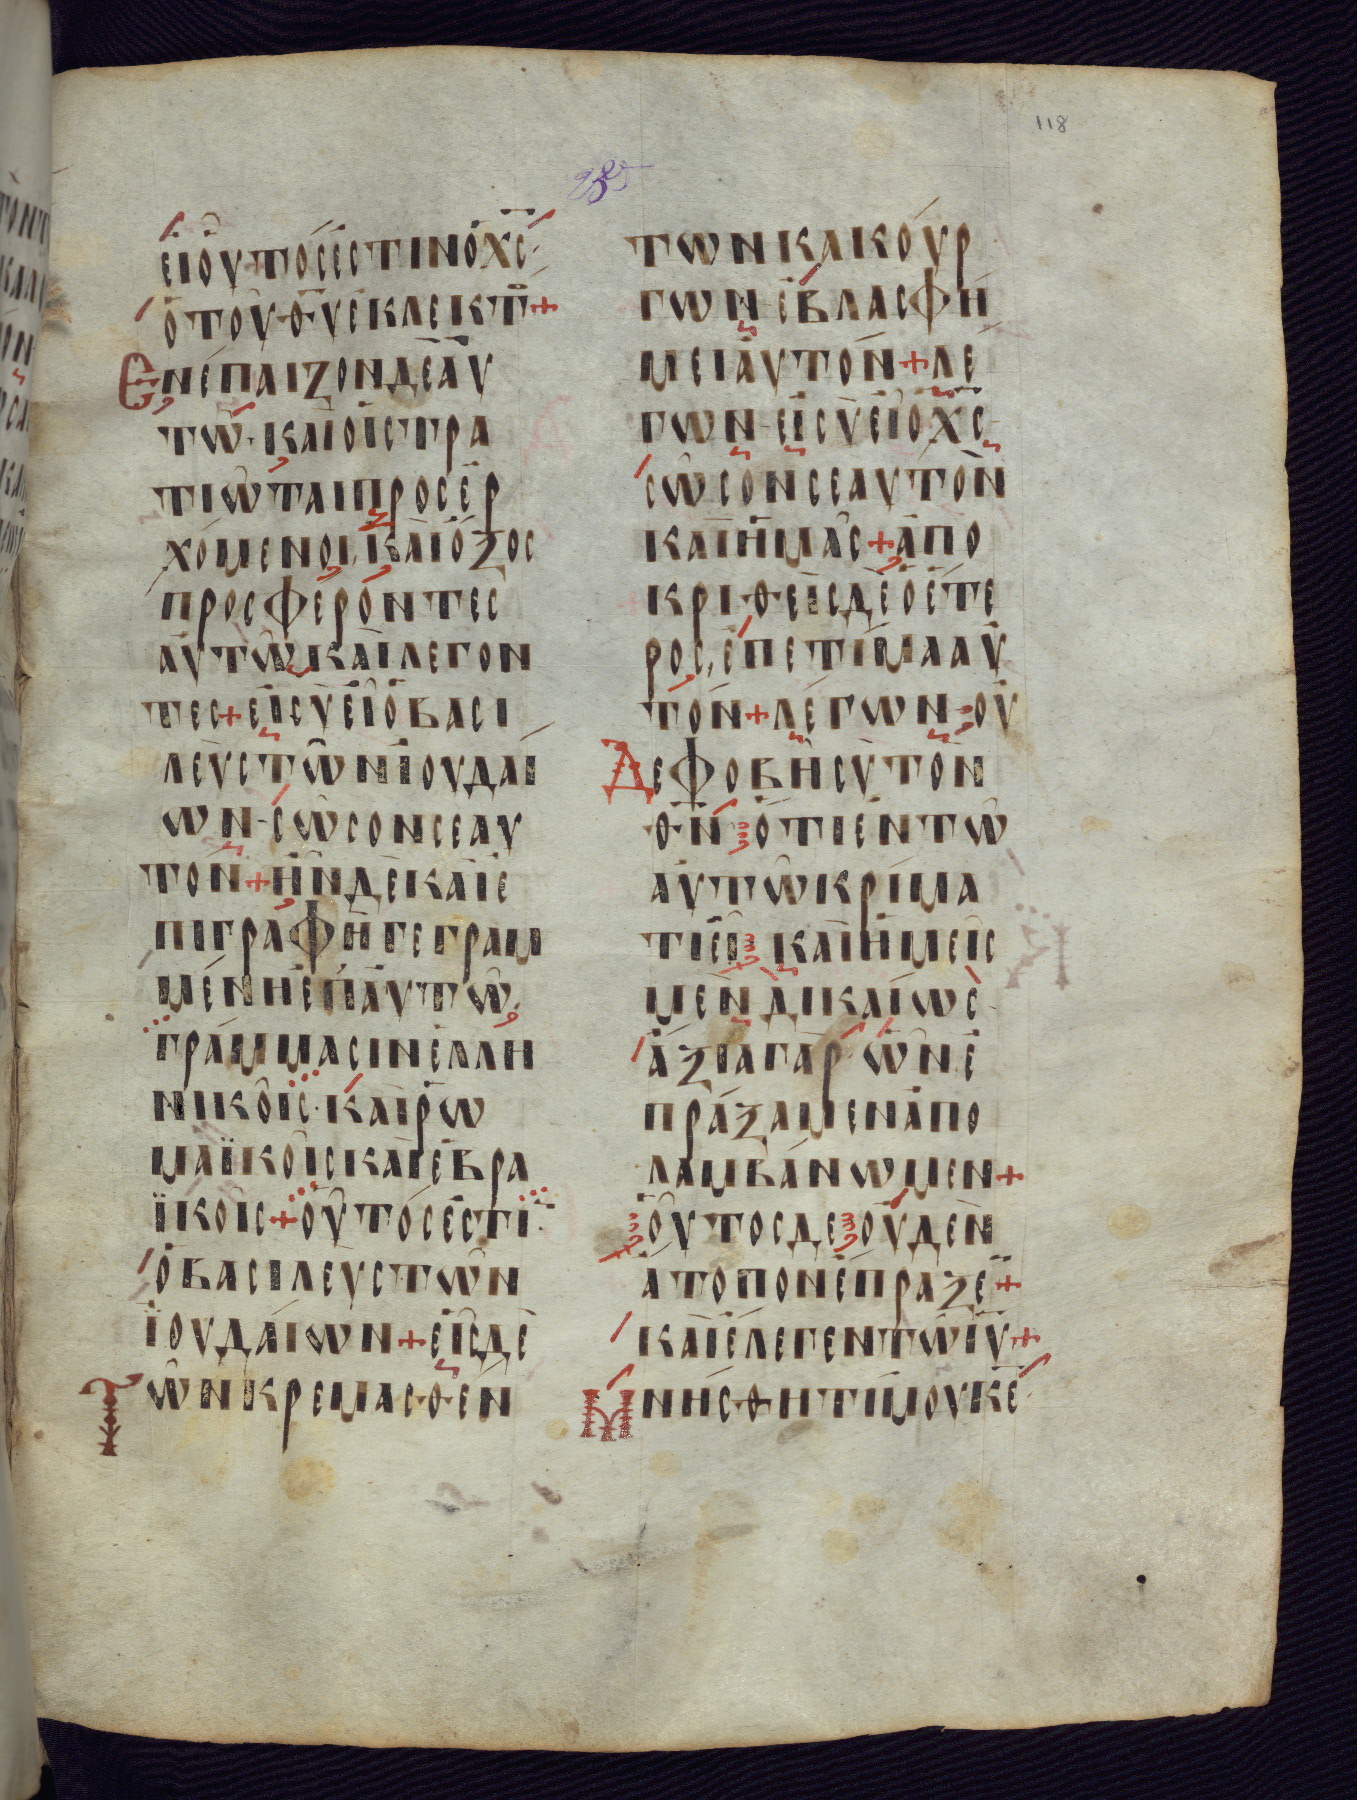 118
ΕΙΟΥΤΟΣΕΣΤΙΝΟΧ̅Σ̅
ΟΤΟΥΘ̅Υ̅ΕΚΛΕΚΤ
ΕΝΕΠΑΙΖΟΝΔΕΑΥ
ΤΩ·ΚΑΙΟΙΣΤΡΑ
ΤΙΩΤΑΙΠΡΟΣΕΡ
ΧΟΜΕΝΟΙ,ΚΑΙΟΞΟΣ
ΠΡΟΣΦΕΡΟΝΤΕΣ
ΑΥΤΩΚΑΙΛΕΓΟΝ
ΤΕΣ+ΕΙΣΥΕΙΟΒΑΣΙ
ΛΕΥΣΤΩΝΙΟΥΔΑΙ
ΩΝ·ΣΩΣΟΝΣΕΑΥ
ΤΟΝ+ΗΝΔΕΚΑΙΕ
ΠΙΓΡΑΦΗΓΕΓΡΑΜ
ΜΕΝΗΕΠΑΥΤΩ
ΓΡΑΜΜΑΣΙΝΕΛΛΗ
ΝΙΚΟΙΣ·ΚΑΙΡΩ
ΜΑΪΚΟΙΣΚΑΙΕΒΡΑ
ΪΚΟΙΣ+ΟΥΤΟΣΕΣΤΙ
ΟΒΑΣΙΛΕΥΣΤΩΝ
ΪΟΥΔΑΙΩΝ+ΕΙΣΔΕ
ΤΩΝΚΡΕΜΑΣΘΕΝ
ΤΩΝΚΑΚΟΥΡ
ΓΩΝ·ΕΒΛΑΣΦΗ
ΜΕΙΑΥΤΟΝ+ΛΕ
ΓΩΝ·ΕΙΣΥΕΙΟΧ̅Σ̅
ΣΩΣΟΝΣΕΑΥΤΟΝ
ΚΑΙΗΜΑΣ+ΑΠΟ
ΚΡΙΘΕΙΣΔΕΟΕΤΕ
ΡΟΣ,ΕΠΕΤΙΜΑΑΥ
ΤΟΝ+ΛΕΓΩΝ·ΟΥ
ΔΕΦΟΒΗΣΥΤΟΝ
Θ̅Ν̅ΟΤΙΕΝΤΩ
ΑΥΤΩΚΡΙΜΑ
ΤΙΕΙΚΑΙΗΜΕΙΣ
ΜΕΝΔΙΚΑΙΩΣ·
ΑΞΙΑΓΑΡΩΝΕ
ΠΡΑΞΑΜΕΝΑΠΟ
ΛΑΜΒΑΝΩΜΕΝ+
ΟΥΤΟΣΔΕΟΥΔΕΝ
ΑΤΟΠΟΝΕΠΡΑΞΕ+
ΚΑΙΕΛΕΓΕΝΤΩΙ̅Υ̅+
ΜΝΗΣΘΗΤΙΜΟΥΚ̅Ε̅